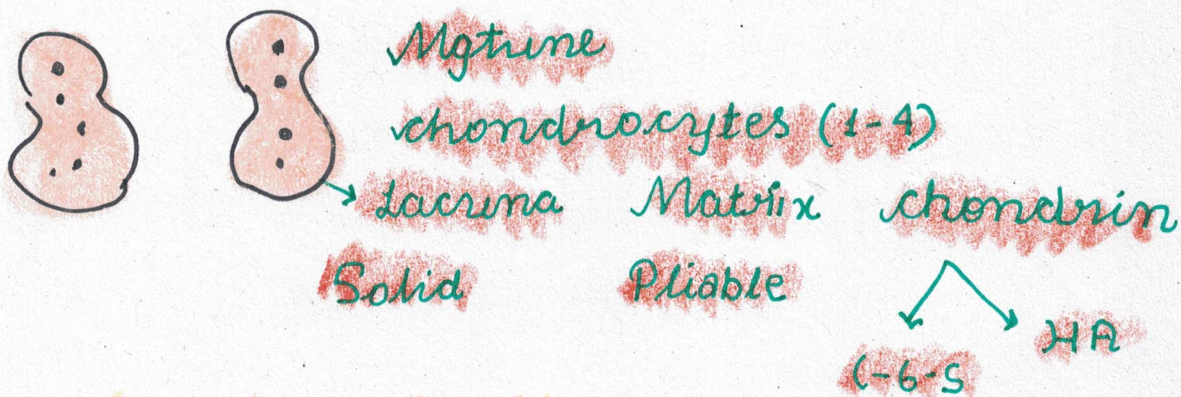 Mgtune
chondrocytes (1-4)
Lacuna Matrix chondrin
Solid Pliable
HA
C-6-S